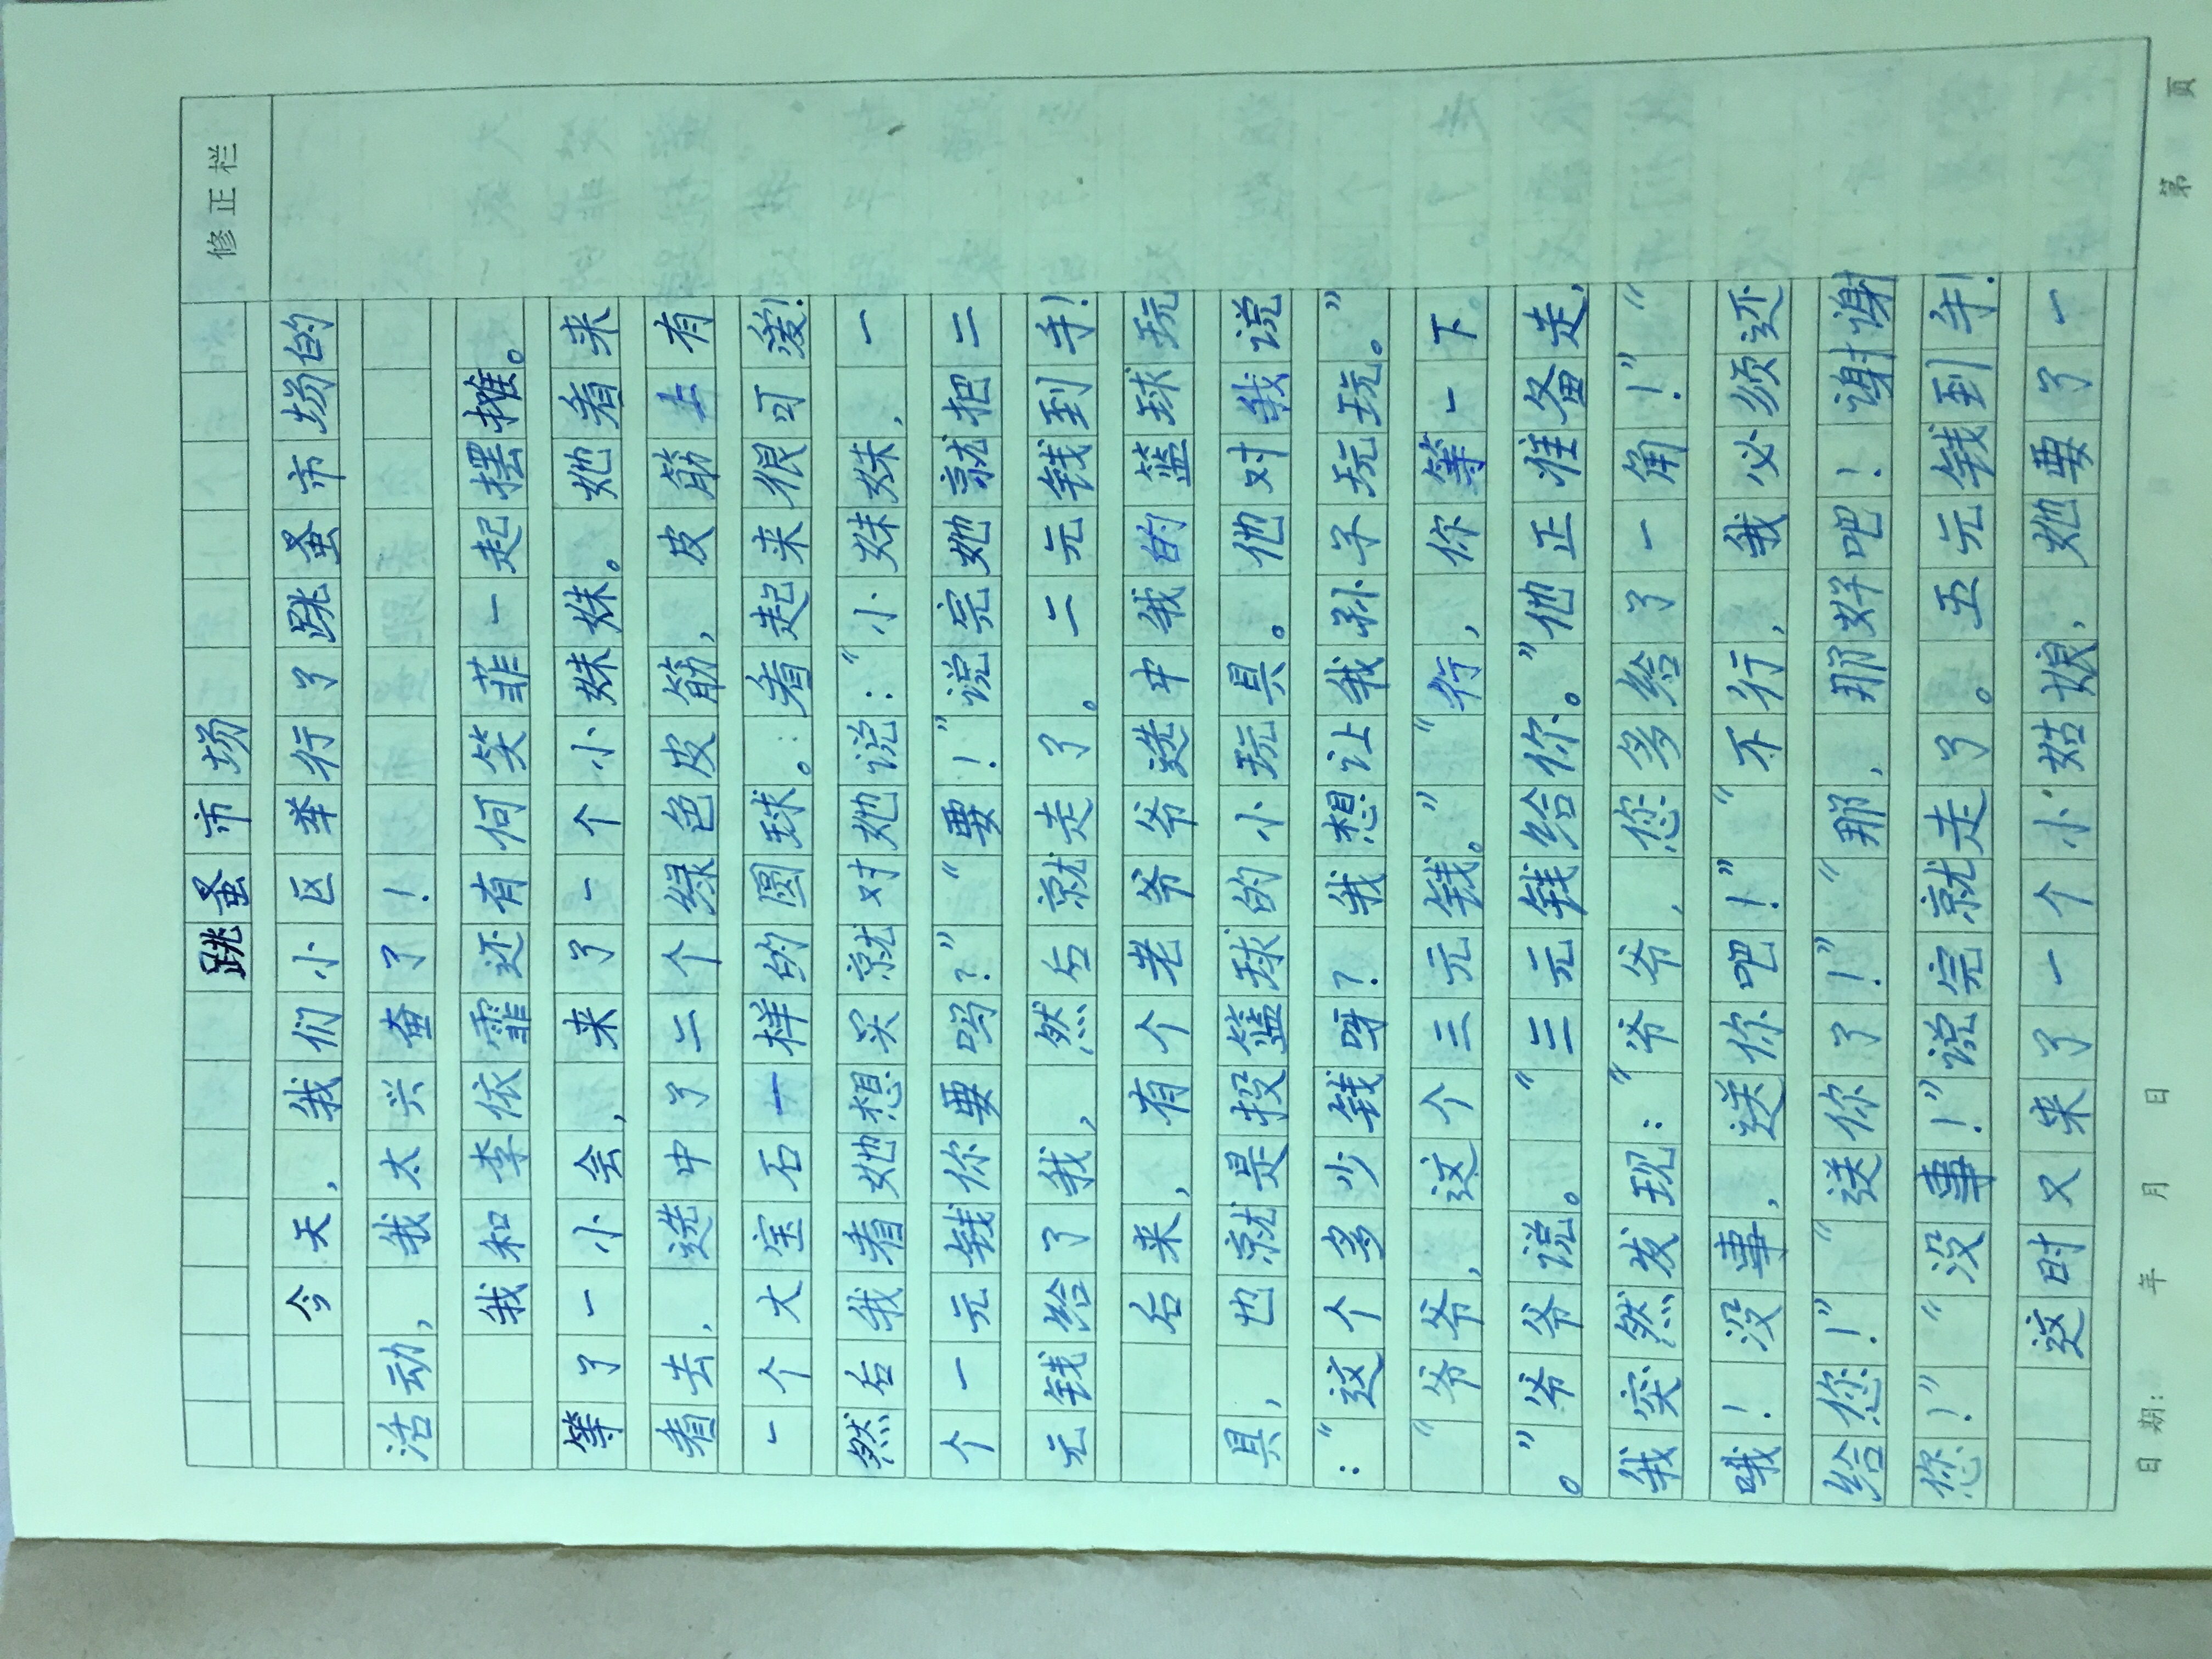 修正栏
跳蚤市场
今天，我们小区举行了跳蚤市场的
活动，我太兴奋了！
我和李依霏还有何笑菲一起摆摊。
等了一小会，来了一个小妹妹。她看来
看去，选中了二个绿色皮筋，皮筋上有
一个大宝石一样的圆球。看起来很可爱！
然后我看她想买就对她说：“小妹妹，一
个一元钱你要吗？”“要！”说完她就把二
元钱给了我，然后就走了。二元钱到手！
后来，有个老爷爷选中我的篮球玩
具，也就是投篮球的小玩具。他对我说
：“这个多少钱呀？我想让我孙子玩玩。”
“爷爷，这个三元钱。”“行，你等一下。
。”爷爷说。“三元钱给你。”他正准备走，
我突然发现：“爷爷，您多给了一角！”“
哦！没事，送你吧！”“不行，我必须还
给您！”“送你了！”“那，那好吧！谢谢
您！”“没事！”说完就走了。五元钱到手！
这时又来了一个小姑娘，她要了一
日期： 年 月 日
第 页